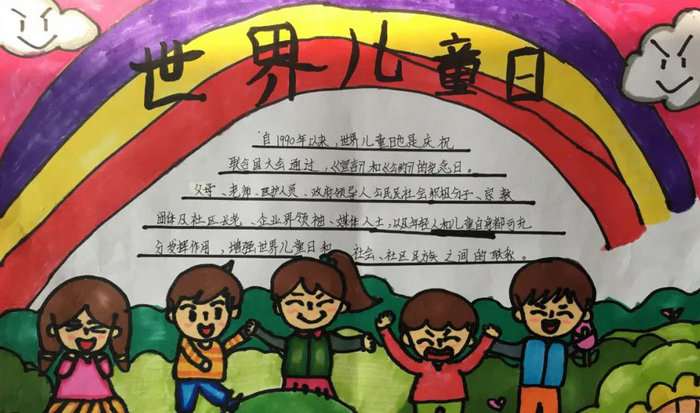 世界儿童日
自1990年以来,世界儿童日也是庆祝
联合国大会通过,《宣言》和《公约》的纪念日。
父母、老师、医护人员、政府领导人公民民社会积极分子、宗教
团体及社区长老、企业界领袖、媒体人士,以及年轻人和儿童自身都可扎
分发挥作用,增强世界儿童日和 社会、社区民族之间的联系。